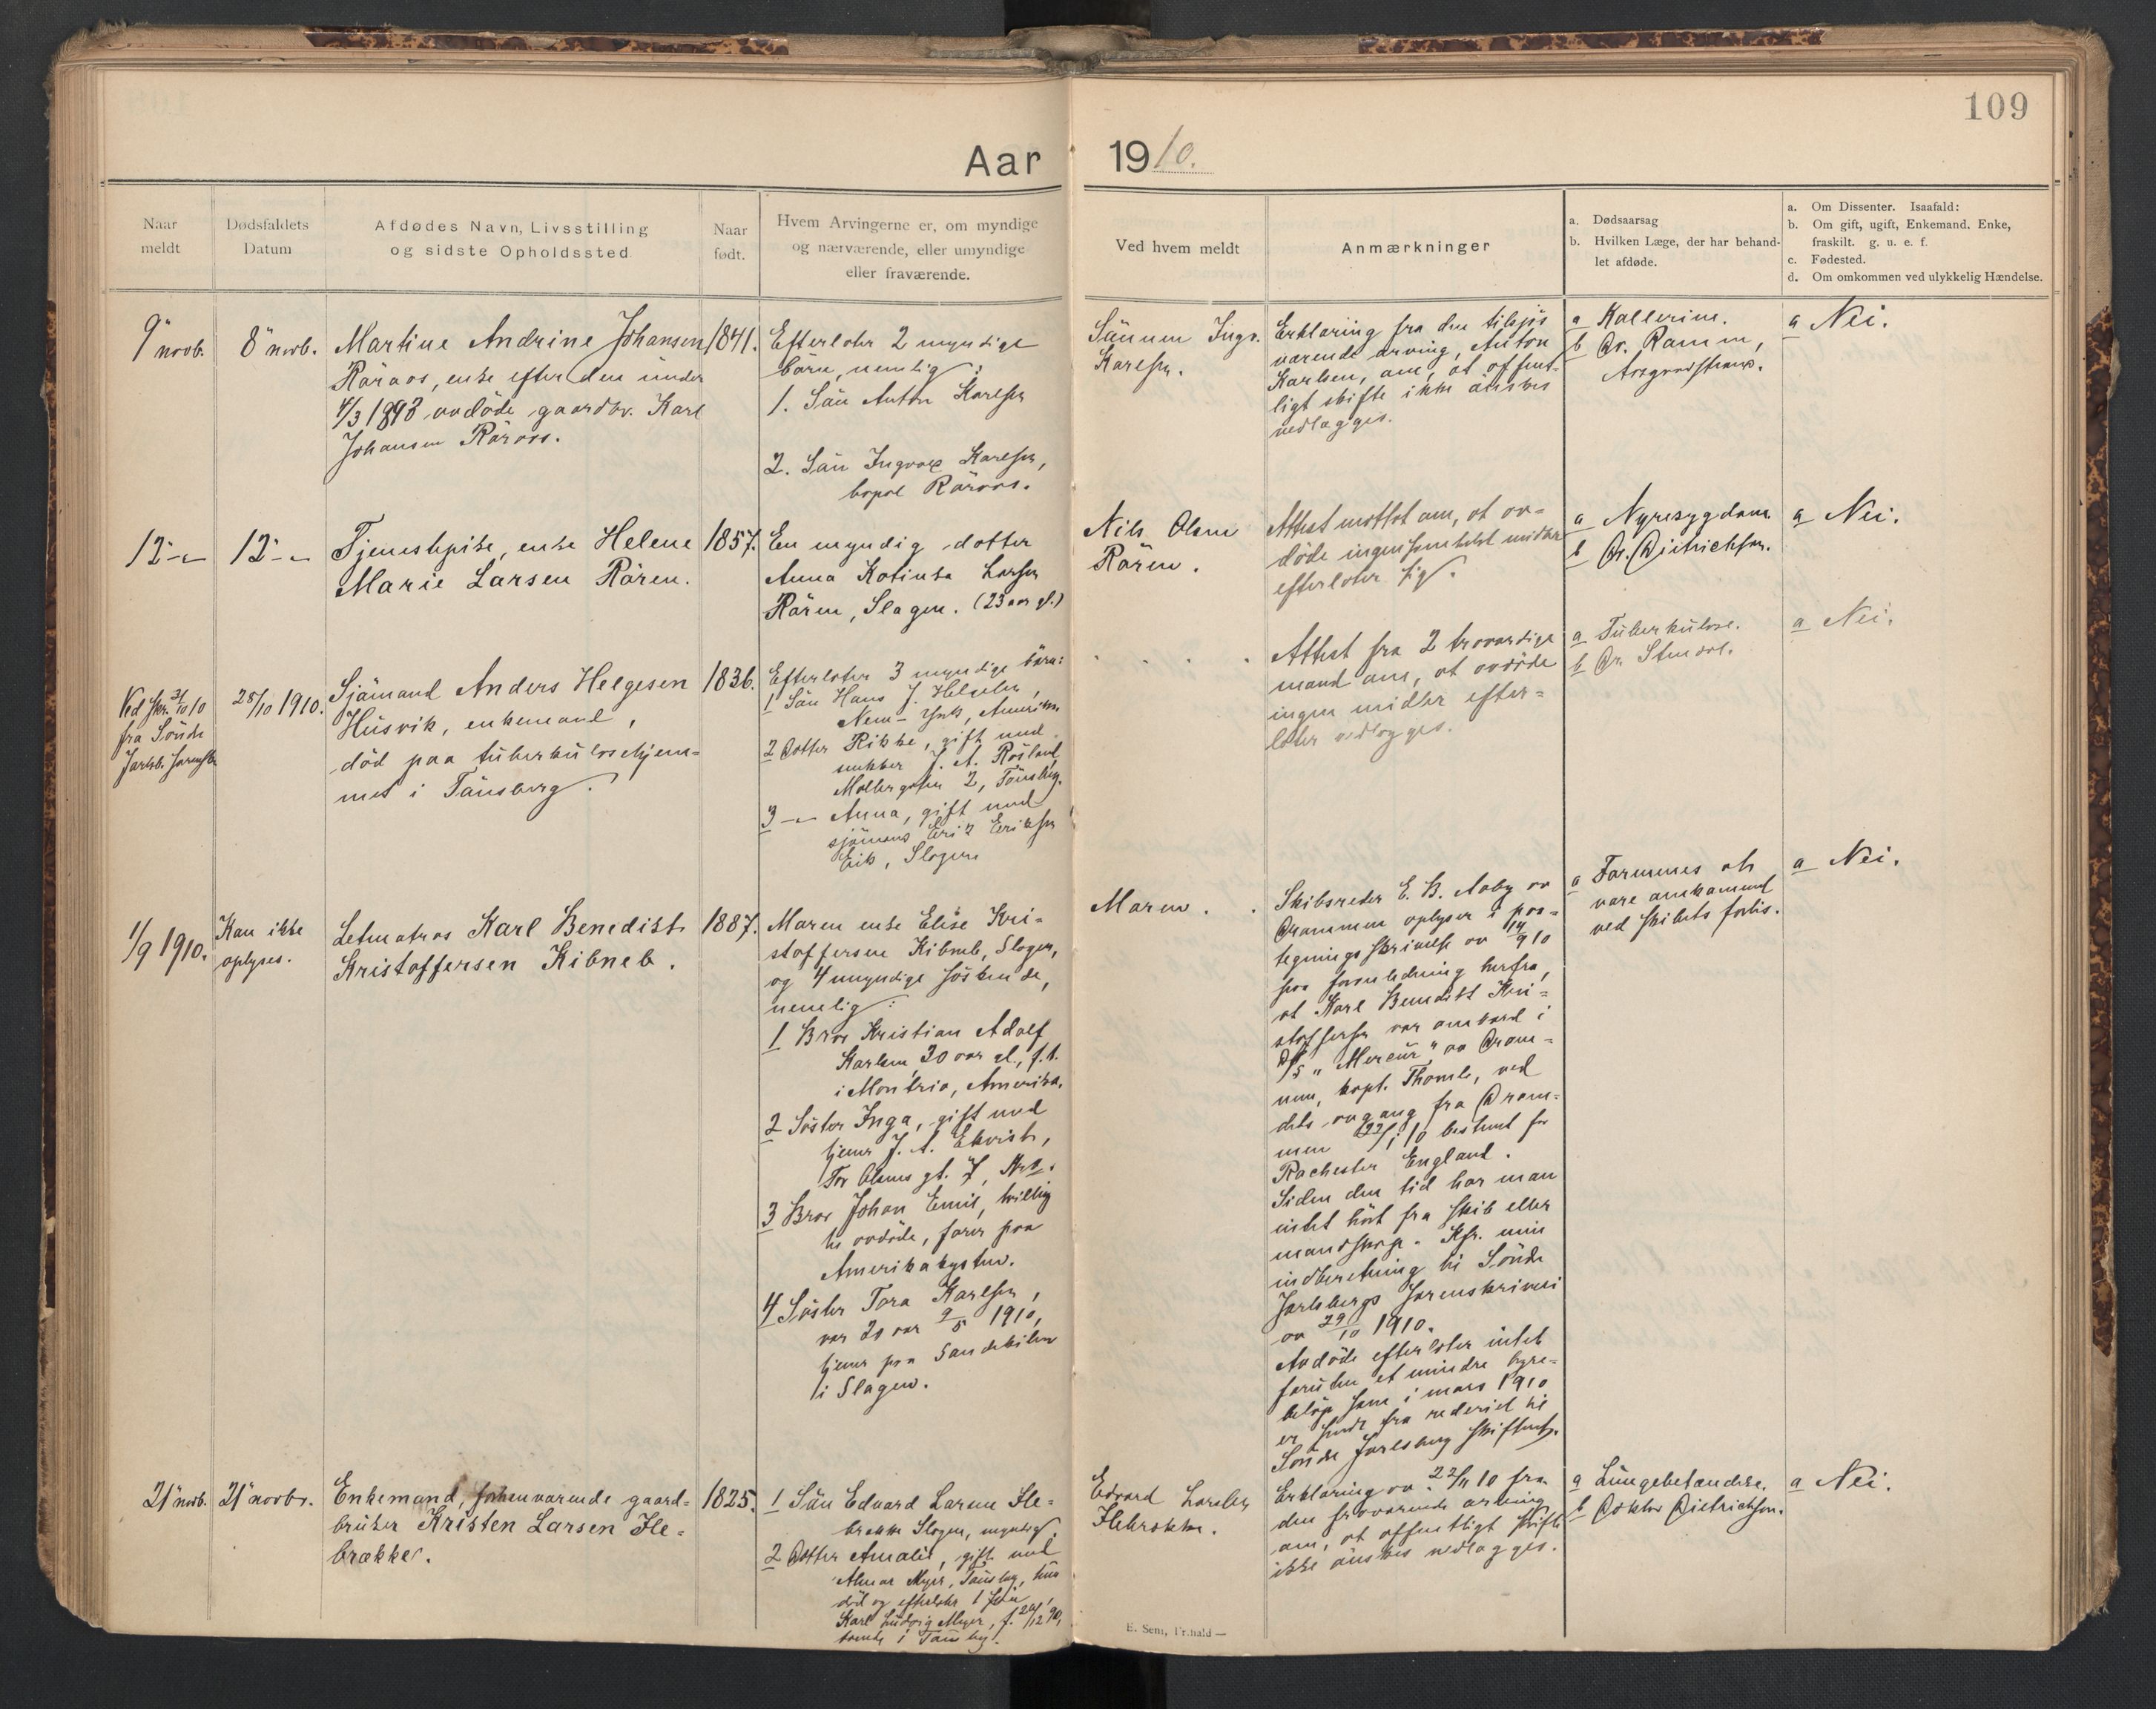 109
Aar 1910.
Naar
meldt
Dødsfaldets
Datum
Afdødes Navn, Livsstilling
og sidste Opholdssted
Naar
født.
Hvem Arvingerne er, om myndige
og nærværende, eller umyndige
eller fraværende.
Ved hvem meldt
Anmærkninger
a. Dødsaarsag
b. Hvilken Læge, der har behand-
let afdøde.
a. Om Dissenter. Isaafald:
b. Om gift, ugift, Enkemand. Enke,
fraskilt. g. u. e. f.
c. Fødested.
d. Om omkommen ved ulykkelig Hændelse.
9 novb.
8 novb.
Martine Andrine Johansen
Råraas, enke efter den under
4/3 1893 avdöde gaardbr. Karl
Johansen Råraas.
1841.
Efterlater 2 myndige
børn, nemlig:
1. Sön Anton Karlsen
2. Sön Ingvar Karlsen,
bopæl Råraas.
Sönnen Ingv.
Karlsen.
Erklæring fra den tilsjös
værende arving, Anton
Karlsen, om, at offent-
ligt skifte ikke önskes
vedlægges.
a Kallerine.
b Dr. Ramm,
Aasgaardstrand.
a Nei.
12 -"-
12 -"-
Tjenestepike, enke Helene
Marie Larsen Råren.
1857.
En myndig datter
Anna Katinka Larsen
Råren, Slagen. (23 aar gl.)
Nils Olsen
Råren.
Attest mottat om, at av-
döde ingensomhelst midler
efterlater sig.
a Nyresygdom.
b Dr. Dietrichson.
a Nei.
Ved skr. 31/10 10
fra Söndre
Jarlsb. sorenskr.
28/10 1910.
Sjömand Anders Helgesen
Husvik, enkemand,
död paa tuberkulosehjem-
met i Tönsberg.
1836.
Efterlater 3 myndige börn:
1 Sön Hans J. Helgesen,
New-York, Amerika
2 Datter Rikke, gift med
snekker J. A. Rosland,
Möllergaten 2, Tönsberg.
3 -"- Anna, gift med
sjömand Erik Eriksen
Eik, Slagen
Attest fra 2 troværdige
mænd om, at avdöde
ingen midler efter-
later vedlægges.
a Tuberkulose.
b Dr. Stendal.
a Nei.
1/9 1910.
Kan ikke
oplyses.
Letmatros Karl Benedikt
Kristoffersen Kilneb.
1887.
Moren enke Elise Kri-
stoffersen Kilneb, Slagen,
og 4 myndige söskende,
nemlig:
1 Bror Kristian Adolf
Karlsen, 30 aar gl., f.t.
i Amerika.
2 Söster Inga, gift med
J. A. Ekvist,
Tor Olsens gt. 7, Kra.
3 Bror Johan Emil, tvilling
til avdöde, farer paa
Amerikakysten.
4 Söster Tora Karlsen,
var 20 aar 9/5 1910,
tjener paa
i Slagen.
Moren.
Skibsreder E. B. Aaby av
Drammen oplyser i paa-
tegningsskrivelse av 14/9 10
paa foranledning herfra,
at Karl Benedikt Kri-
stoffersen var ombord i
D/S "Mercur" av Dram-
men, kapt. Thomle, ved
dets avgang fra Dram-
men 22/1 10 bestemt for
Rochester England.
Siden den tid har man
intet hört fra skib eller
mandskap. Kfr. min
indberetning til Söndre
Jarlsbergs sorenskriveri
av 29/10 1910.
Avdöde efterlater intet
foruten et mindre hyre-
belöp som i mars 1910
er sendt fra rederiet til
Söndre Jarlsberg skifteret.
a Formenes at
være omkommet
ved skibets forlis.
a Nei.
21 novb.
21 novbr.
Enkemand, forhenværende gaard-
bruker Kristen Larsen Fle-
brække.
1825.
1 Sön Edvard Larsen Fle-
brække Slagen, myndig.
2 Datter Amalie, gift med
Meyer, Tönsberg, hun
död og efterlater 1 sön,
Karl Ludvig Meyer, f. 20/12 90,
boende i Tönsberg.
Edvard Larsen
Flebrække.
Erklæring av 22/11 10 fra
den fraværende arving
om, at offentligt skifte
ikke önskes vedlægges.
a Lungebetændelse.
b Doktor Dietrichson.
a Nei.
E. Sem, Fr.hald —